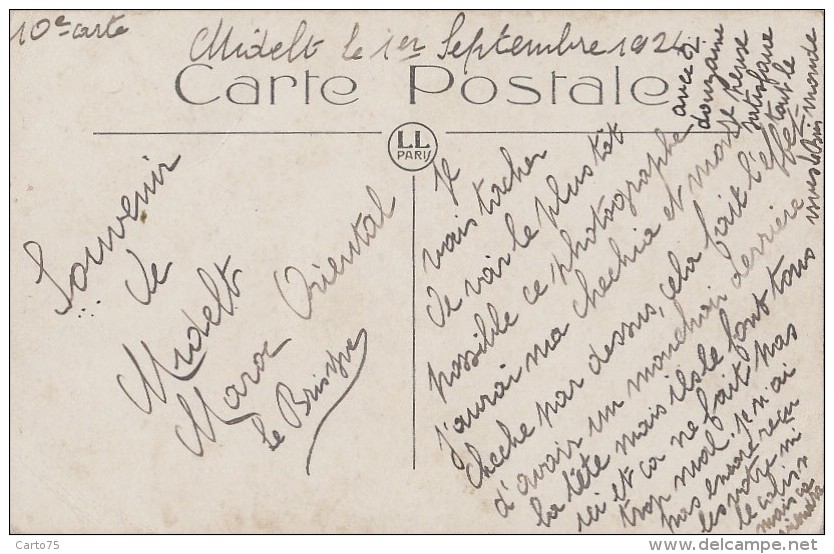 10e carte
Midelt le 1er Septembre 192
Carte Postale
LL
PARIS
Souvenir
de
Midelt
Maroc Oriental
Le
Je
vais tacher
de voir le plus tôt
possible ce photographe
J'aurai ma chechia et mon
cheche par dessus, cela fait l'effet
d'avoir un manchon derrière
la tête mais ils le font tous
ici et ça ne fait pas
trop mal. Je n'ai
pas encore reçu
les votre ni
le colis
mais ça
viendra
avec
douzaine
je pense
satisfaire
tout le
monde
Carto75
www.delcampe.net